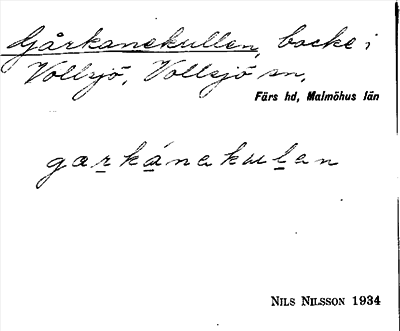 Gårkanekullen, backe i
Vollsjö, Vollsjö sn,
Färs hd, Malmöhus län
gærkánekulen
NILS NILSSON 1934